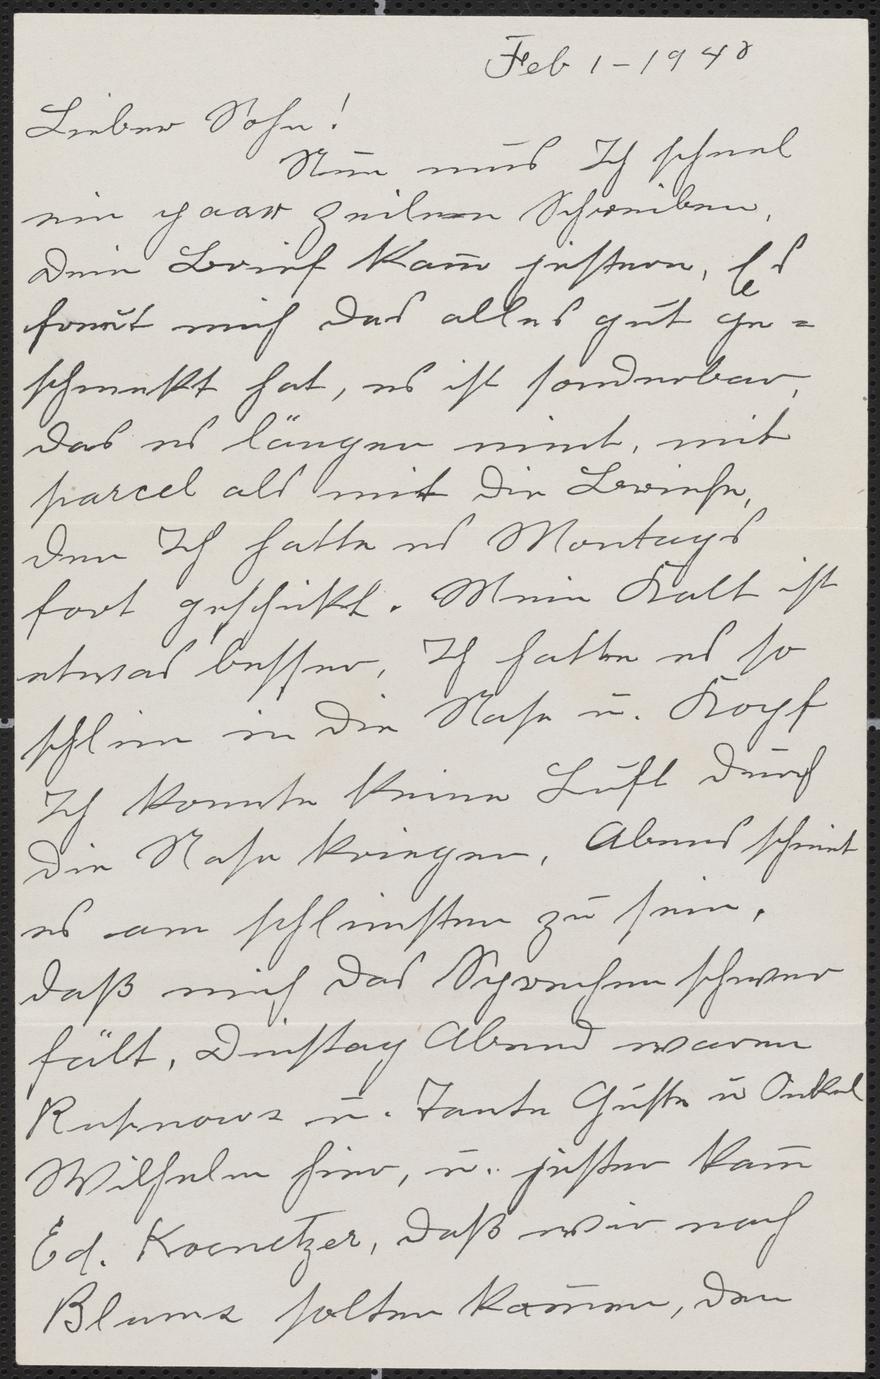 Feb 1 - 1940
Lieber Sohn!
Nun mus Ich schnel
ein paar Zeilen Schreiben,
Dein Brief kam̄ jestern, Es
freut mich das alles gut ge=
schmekt hat, es ist sonderbar,
das es längen nimt, mit
parcel als mit die Briefe,
den Ich hatte es Montags
fort geschikt. Mein Kalt ist
etwas besser, Ich hatte es so
schlim in die Nase u. Kopf
Ich konnte keine Luft durch
die Nase kriegen, Abends scheint
es am schlimsten zu sein,
daß mich das Sprechen schwer
fält, Dinstag Abend waren
Rusnows u. Tante Guste u Onkel
Wilhelm hier, u. jester kam̄
Ed. Koenetzer, daß wir nach
Blums solten kom̄en, den